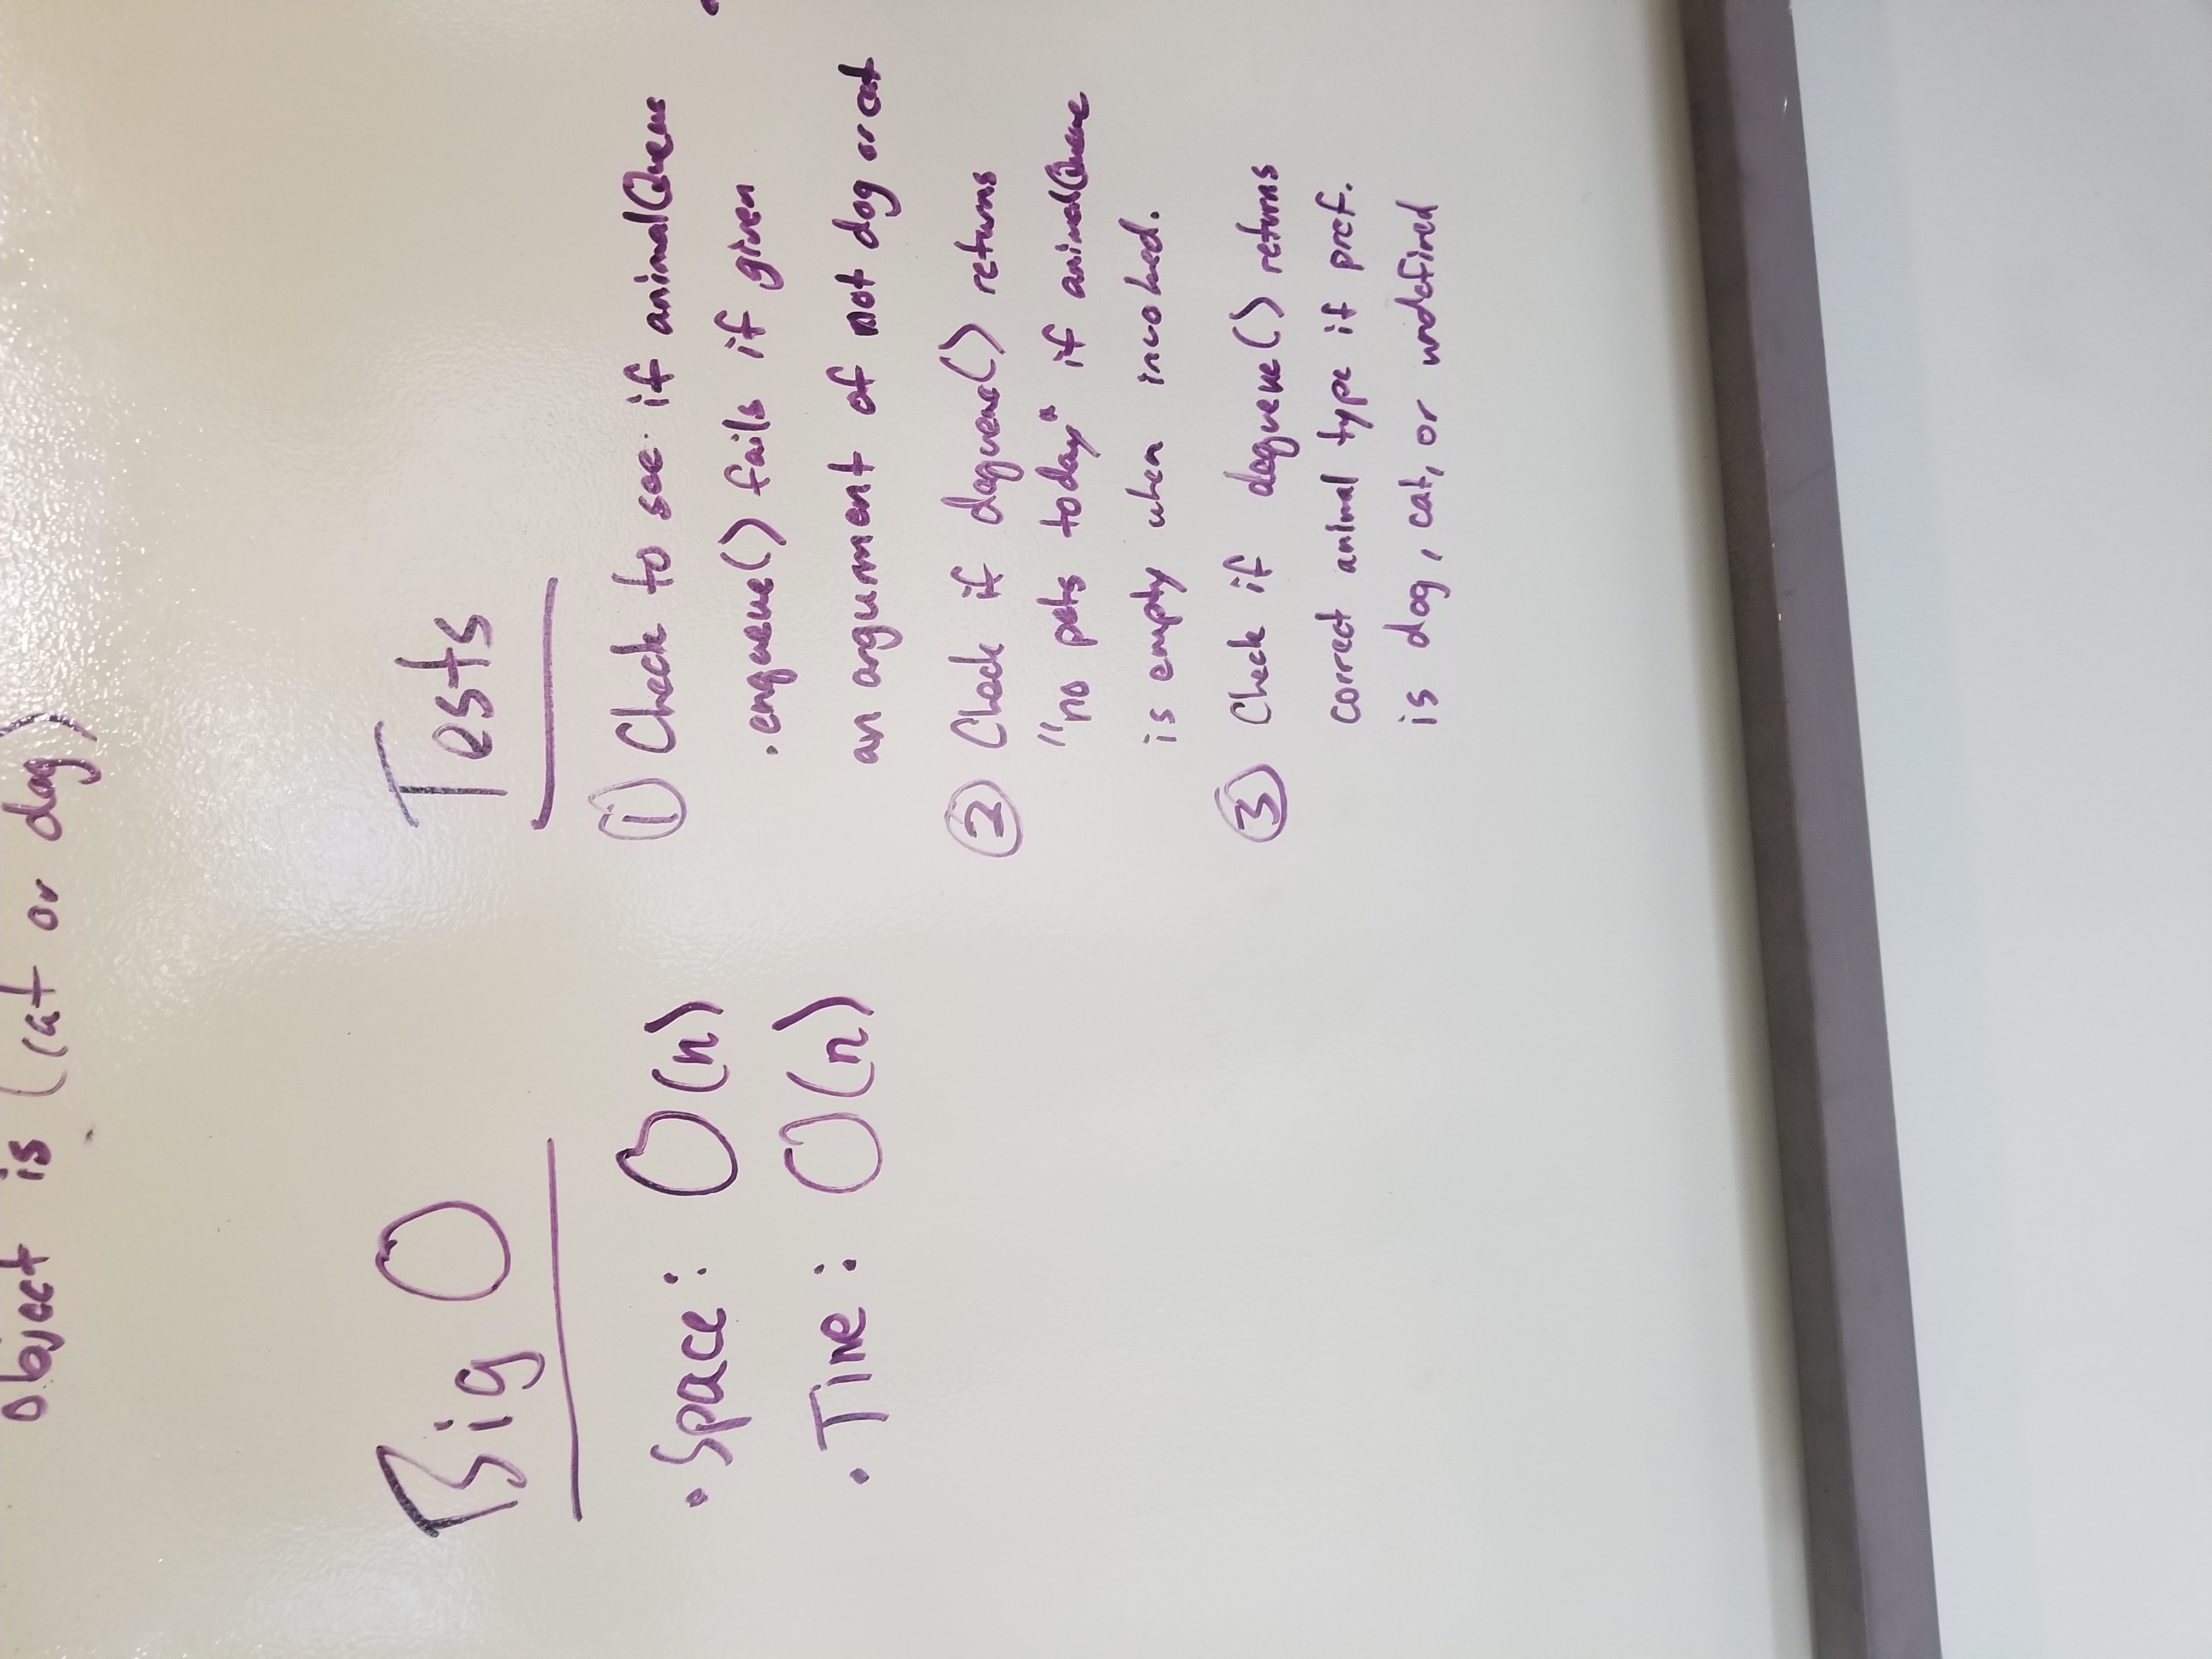 Object is (cat or dog)
Big O
• Space: O(n)
• Time: O(n)
Tests
① Check to see if animalQueue
.enqueue() fails if given
an argument of not dog or cat
② Check if dequeue() returns
"no pets today" if animalQueue
is empty when invoked.
③ Check if dequeue() returns
correct animal type if pref.
is dog, cat, or undefined